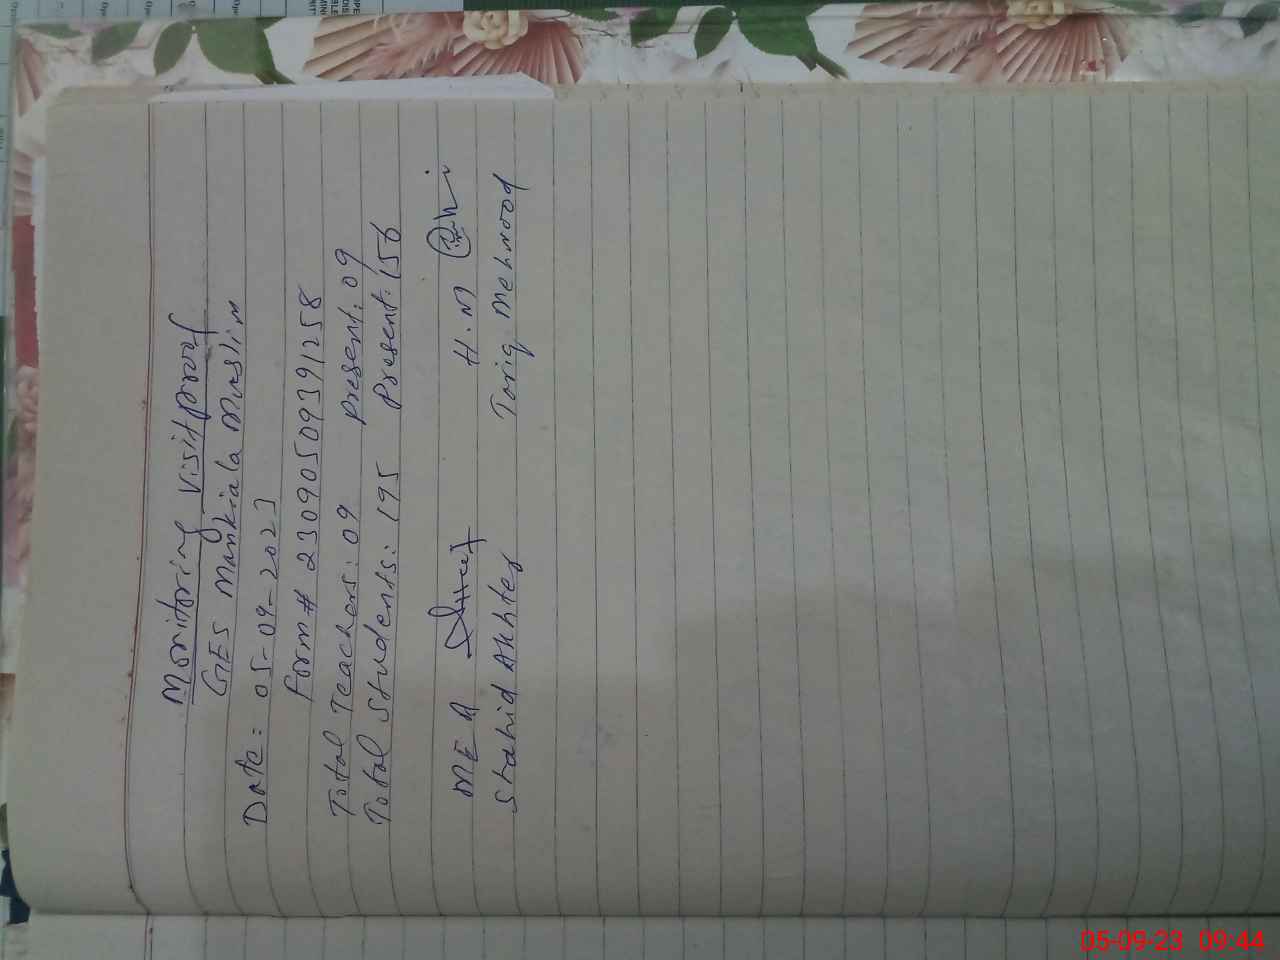 Monitoring visit proof
GES Mankiala Muslim
Date: 05-09-2023
Form # 23090509391258
Total Teachers: 09 Present: 09
Total Students: 195 Present: 156
MEA H.M
Shahid Akhter Tariq Mehmood
05-09-23 09:44